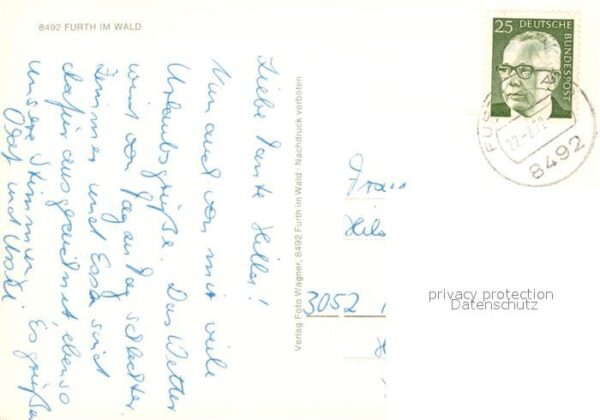 8492 FURTH IM WALD
Liebe Tante Hilla!
Nun auch von mir viele
Urlaubsgrüße. Das Wetter
wird von Tag zu Tag schlechter.
Zimmer und Essen sind
dafür ausgezeichnet, ebenso
unsere Stimmung. Es grüßen
Olaf und Uschi.
Verlag Foto Wagner, 8492 Furth im Wald - Nachdruck verboten
25 DEUTSCHE BUNDESPOST
8492
Frau
3052
privacy protection
Datenschutz